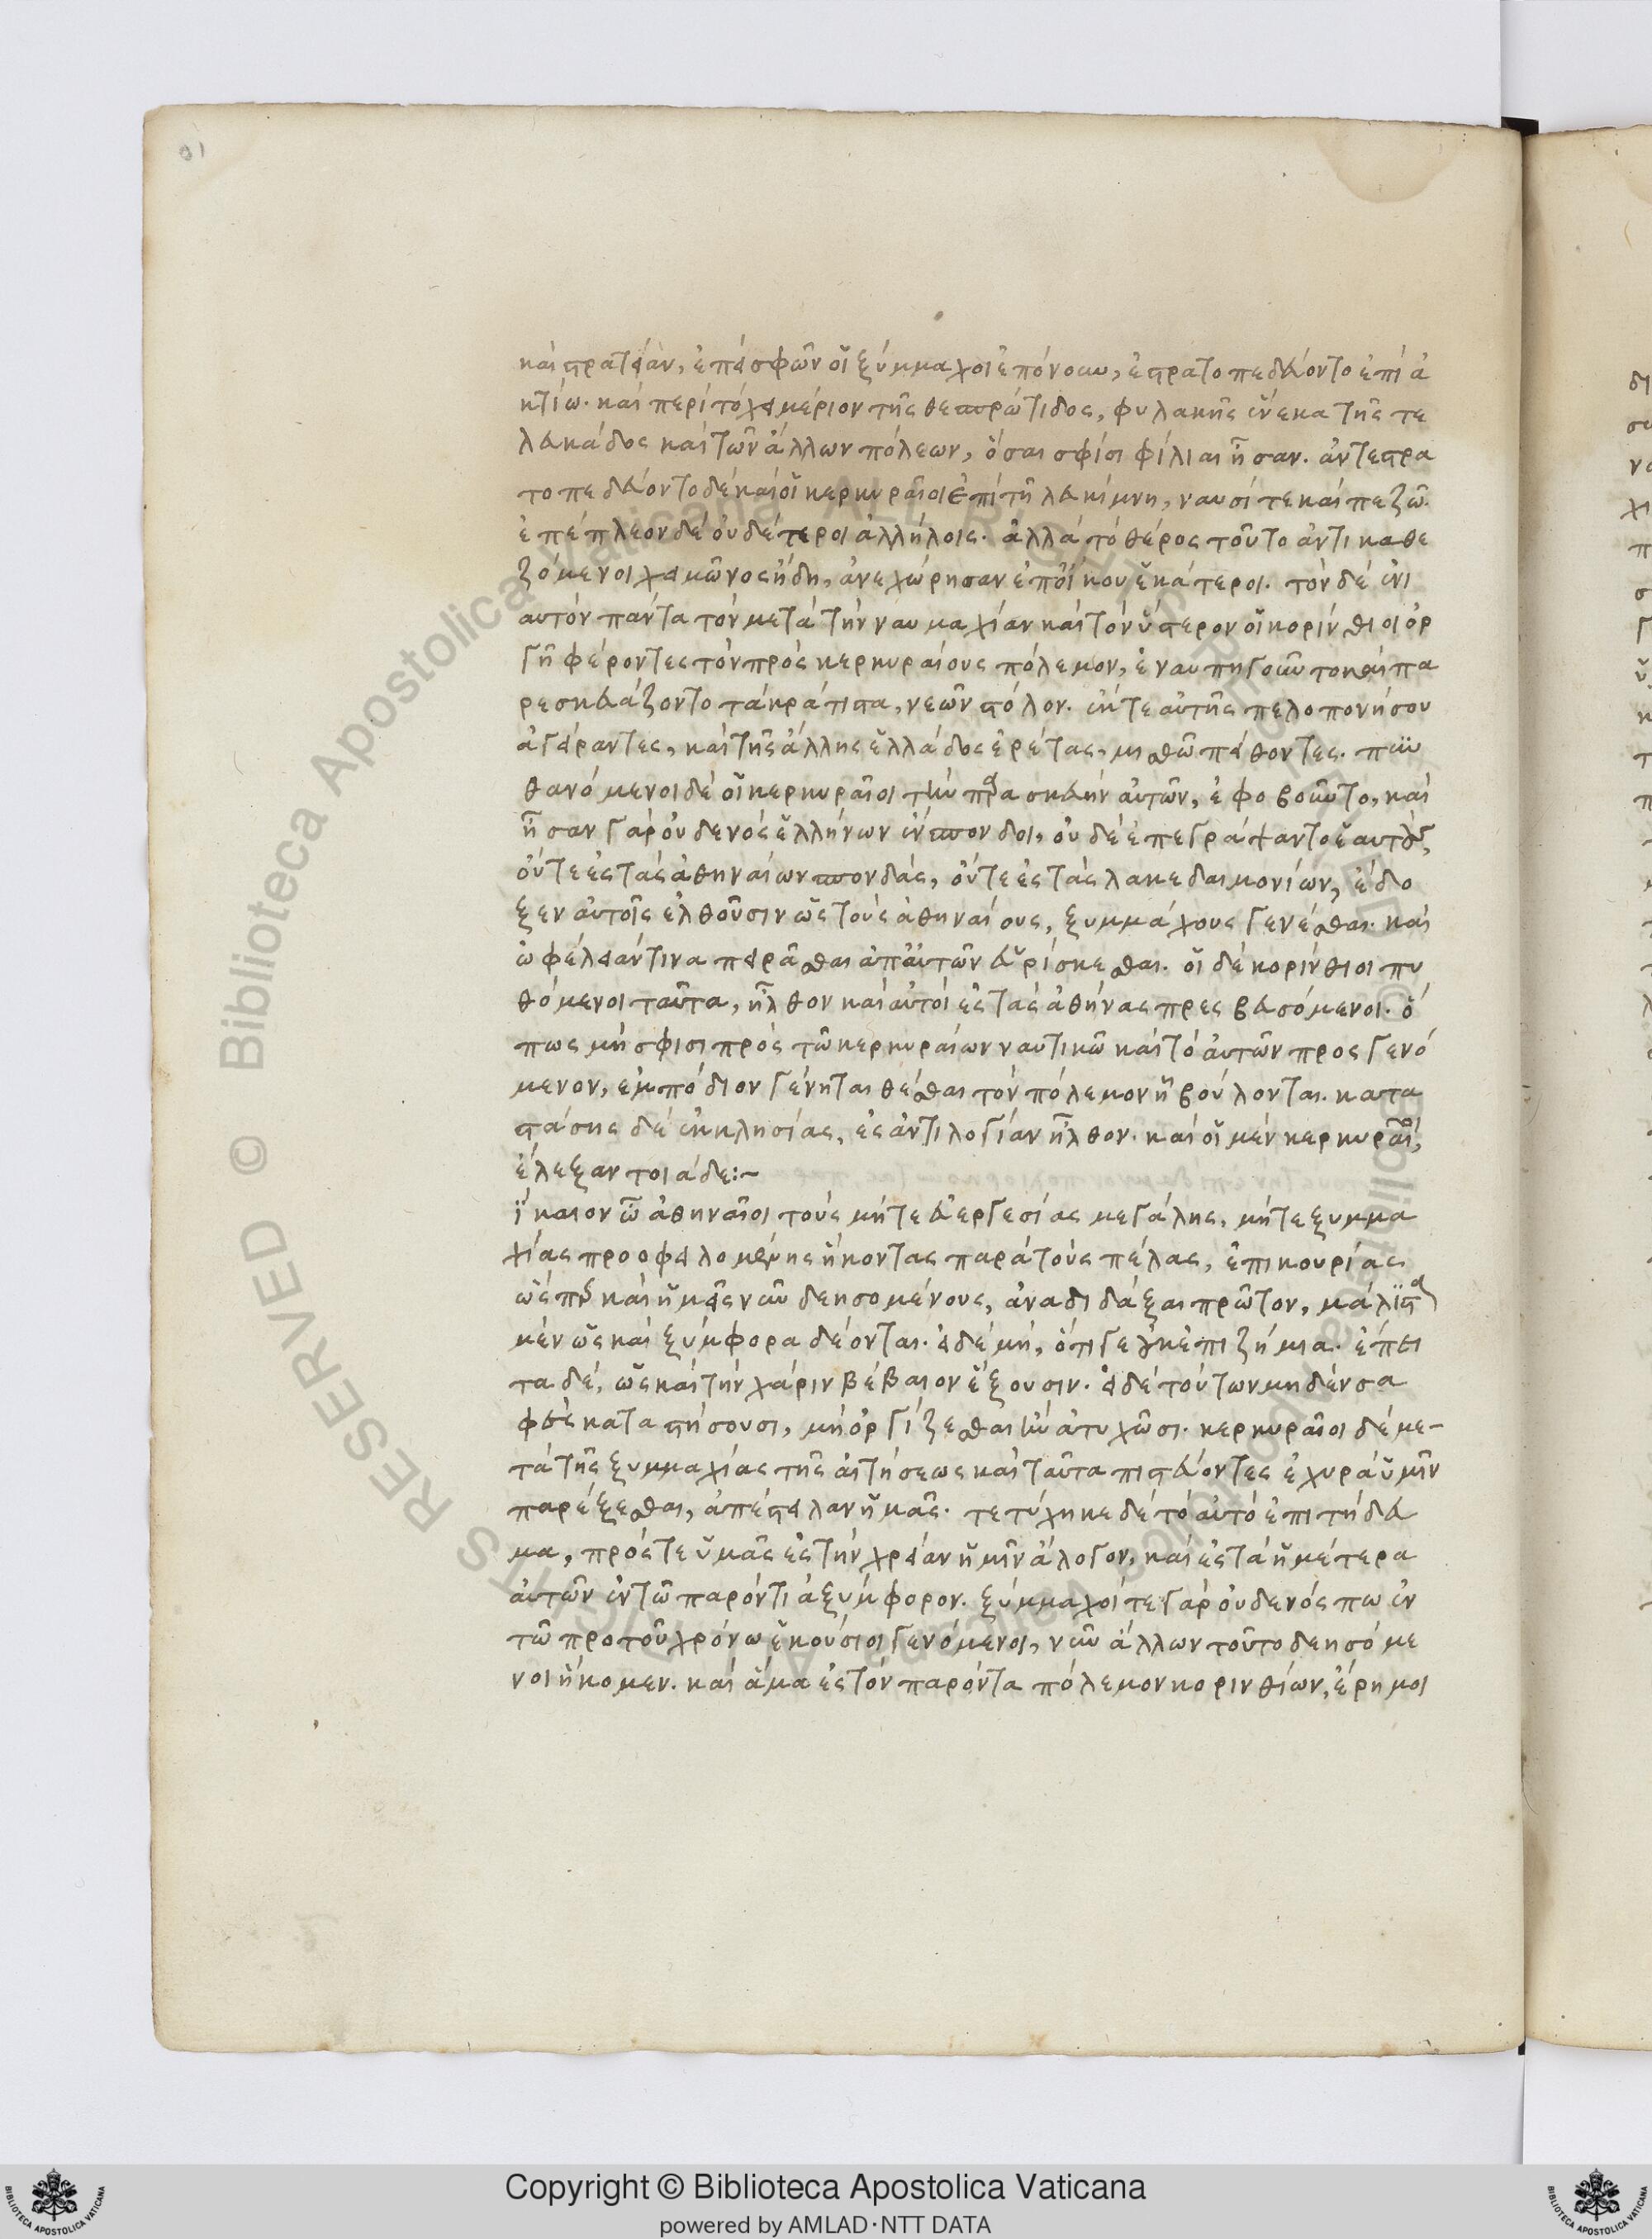 καὶ στρατειὰν, ἐπεὶ σφῶν οἱ ξύμμαχοι ἐπόνουν, ἐστρατοπεδεύοντο ἐπὶ ἀ
κτίω. καὶ περὶ τὸ χειμέριον τῆς θεσπρώτιδος, φυλακῆς ἕνεκα τῆς τε
λευκάδος καὶ τῶν ἄλλων πόλεων, ὅσαι σφίσι φίλιαι ἦσαν. ἀντεστρα
τοπεδεύοντο δὲ καὶ οἱ κερκυραῖοι ἐπὶ τῆ λευκίμνη, ναυσί τε καὶ πεζῶ.
ἐπέπλεον δὲ οὐδέτεροι ἀλλήλοις. ἀλλὰ τὸ θέρος τοῦτο ἀντικαθε
ζόμενοι χειμῶνος ἤδη, ἀνεχώρησαν ἐπ' οἴκου ἑκάτεροι. τὸν δὲ ἐνι
αυτὸν πάντα τὸν μετὰ τὴν ναυμαχίαν καὶ τὸν ὕστερον οἱ κορίνθιοι ὀρ
γῆ φέροντες τὸν πρὸς κερκυραίους πόλεμον, ἐναυπηγοῦντο καὶ πα
ρεσκευάζοντο τὰ κράτιστα, νεῶν στόλον. ἔκ τε αὐτῆς πελοπονήσου
ἀγείραντες, καὶ τῆς ἄλλης ἑλλάδος ἐρέτας, μισθῶ πείθοντες. πυν
θανόμενοι δὲ οἱ κερκυραῖοι τὴν παρασκευὴν αὐτῶν, ἐφοβοῦντο, καὶ
ἦσαν γὰρ οὐδενὸς ἑλλήνων ἔνσπονδοι, οὐδὲ ἐπεγράψαντο ἑαυτοὺς,
οὔτε ἐς τὰς ἀθηναίων σπονδὰς, οὔτε ἐς τὰς λακεδαιμονίων, ἔδο
ξεν αὐτοῖς ἐλθοῦσιν ὡς τοὺς ἀθηναίους, ξυμμάχους γενέσθαι. καὶ
ὠφέλειάν τινα πειρᾶσθαι ἀπ' αὐτῶν εὑρίσκεσθαι. οἱ δὲ κορίνθιοι πυ
θόμενοι ταῦτα, ἦλθον καὶ αὐτοὶ ἐς τὰς ἀθήνας πρεσβευσόμενοι. ὅ
πως μή σφισι πρὸς τῶ κερκυραίων ναυτικῶ καὶ τὸ αὐτῶν προσγενό
μενον, ἐμπόδιον γένηται θέσθαι τὸν πόλεμον ἧ βούλονται. κατα
στάσης δὲ ἐκκλησίας, ἐς ἀντιλογίαν ἦλθον. καὶ οἱ μὲν κερκυραῖοι,
ἔλεξαν τοιάδε:~
ίκαιον ὦ ἀθηναῖοι τοὺς μήτε εὐεργεσίας μεγάλης, μήτε ξυμμα
χίας προοφειλομένης ἥκοντας παρὰ τοὺς πέλας, ἐπικουρίας
ὥσπερ καὶ ἡμεῖς νῦν δεησομένους, ἀναδιδάξαι πρῶτον, μάλιστα
μὲν ὡς καὶ ξύμφορα δέονται. εἰ δὲ μὴ, ὅτι γε οὐκ ἐπιζήμια. ἔπει
τα δὲ, ὡς καὶ τὴν χάριν βέβαιον ἕξουσιν. εἰ δὲ τούτων μηδὲν σα
φὲς καταστήσουσι, μὴ ὀργίζεσθαι ἢν ἀτυχῶσι. κερκυραῖοι δὲ με-
τὰ τῆς ξυμμαχίας τῆς αἰτήσεως καὶ ταῦτα πιστεύοντες ἐχυρὰ ὑμῖν
παρέξεσθαι, ἀπέστειλαν ἡμᾶς. τετύχηκε δὲ τὸ αὐτὸ ἐπιτήδευ
μα, πρός τε ὑμᾶς ἐς τὴν χρείαν ἡμῖν ἄλογον, καὶ ἐς τὰ ἡμέτερα
αὐτῶν ἐν τῶ παρόντι ἀξύμφορον. ξύμμαχοί τε γὰρ οὐδενός πω ἐν
τῶ προτοῦ χρόνω ἑκούσιοι γενόμενοι, νῦν ἄλλων τοῦτο δεησόμε
νοι ἥκομεν. καὶ ἅμα ἐς τὸν παρόντα πόλεμον κορινθίων, ἔρημοι
Copyright © Biblioteca Apostolica Vaticana
powered by AMLAD·NTT DATA